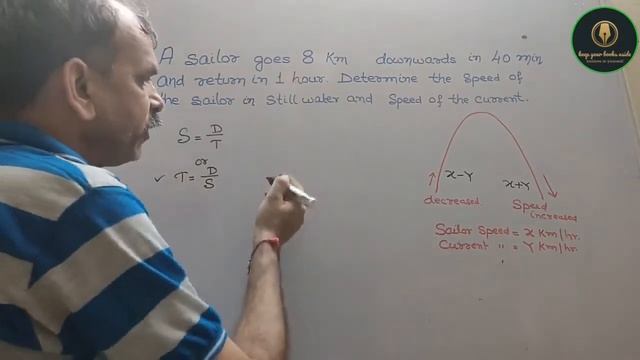 A Sailor goes 8 Km downwards in 40 min
and return in 1 hour. Determine the speed of
the sailor in still water and Speed of the current.
S = D/T
or
✓ T = D/S
x-Y
x+Y
decreased
Speed
increased
Sailor Speed = x Km/hr.
Current " = Y Km/hr.
keep your books aside